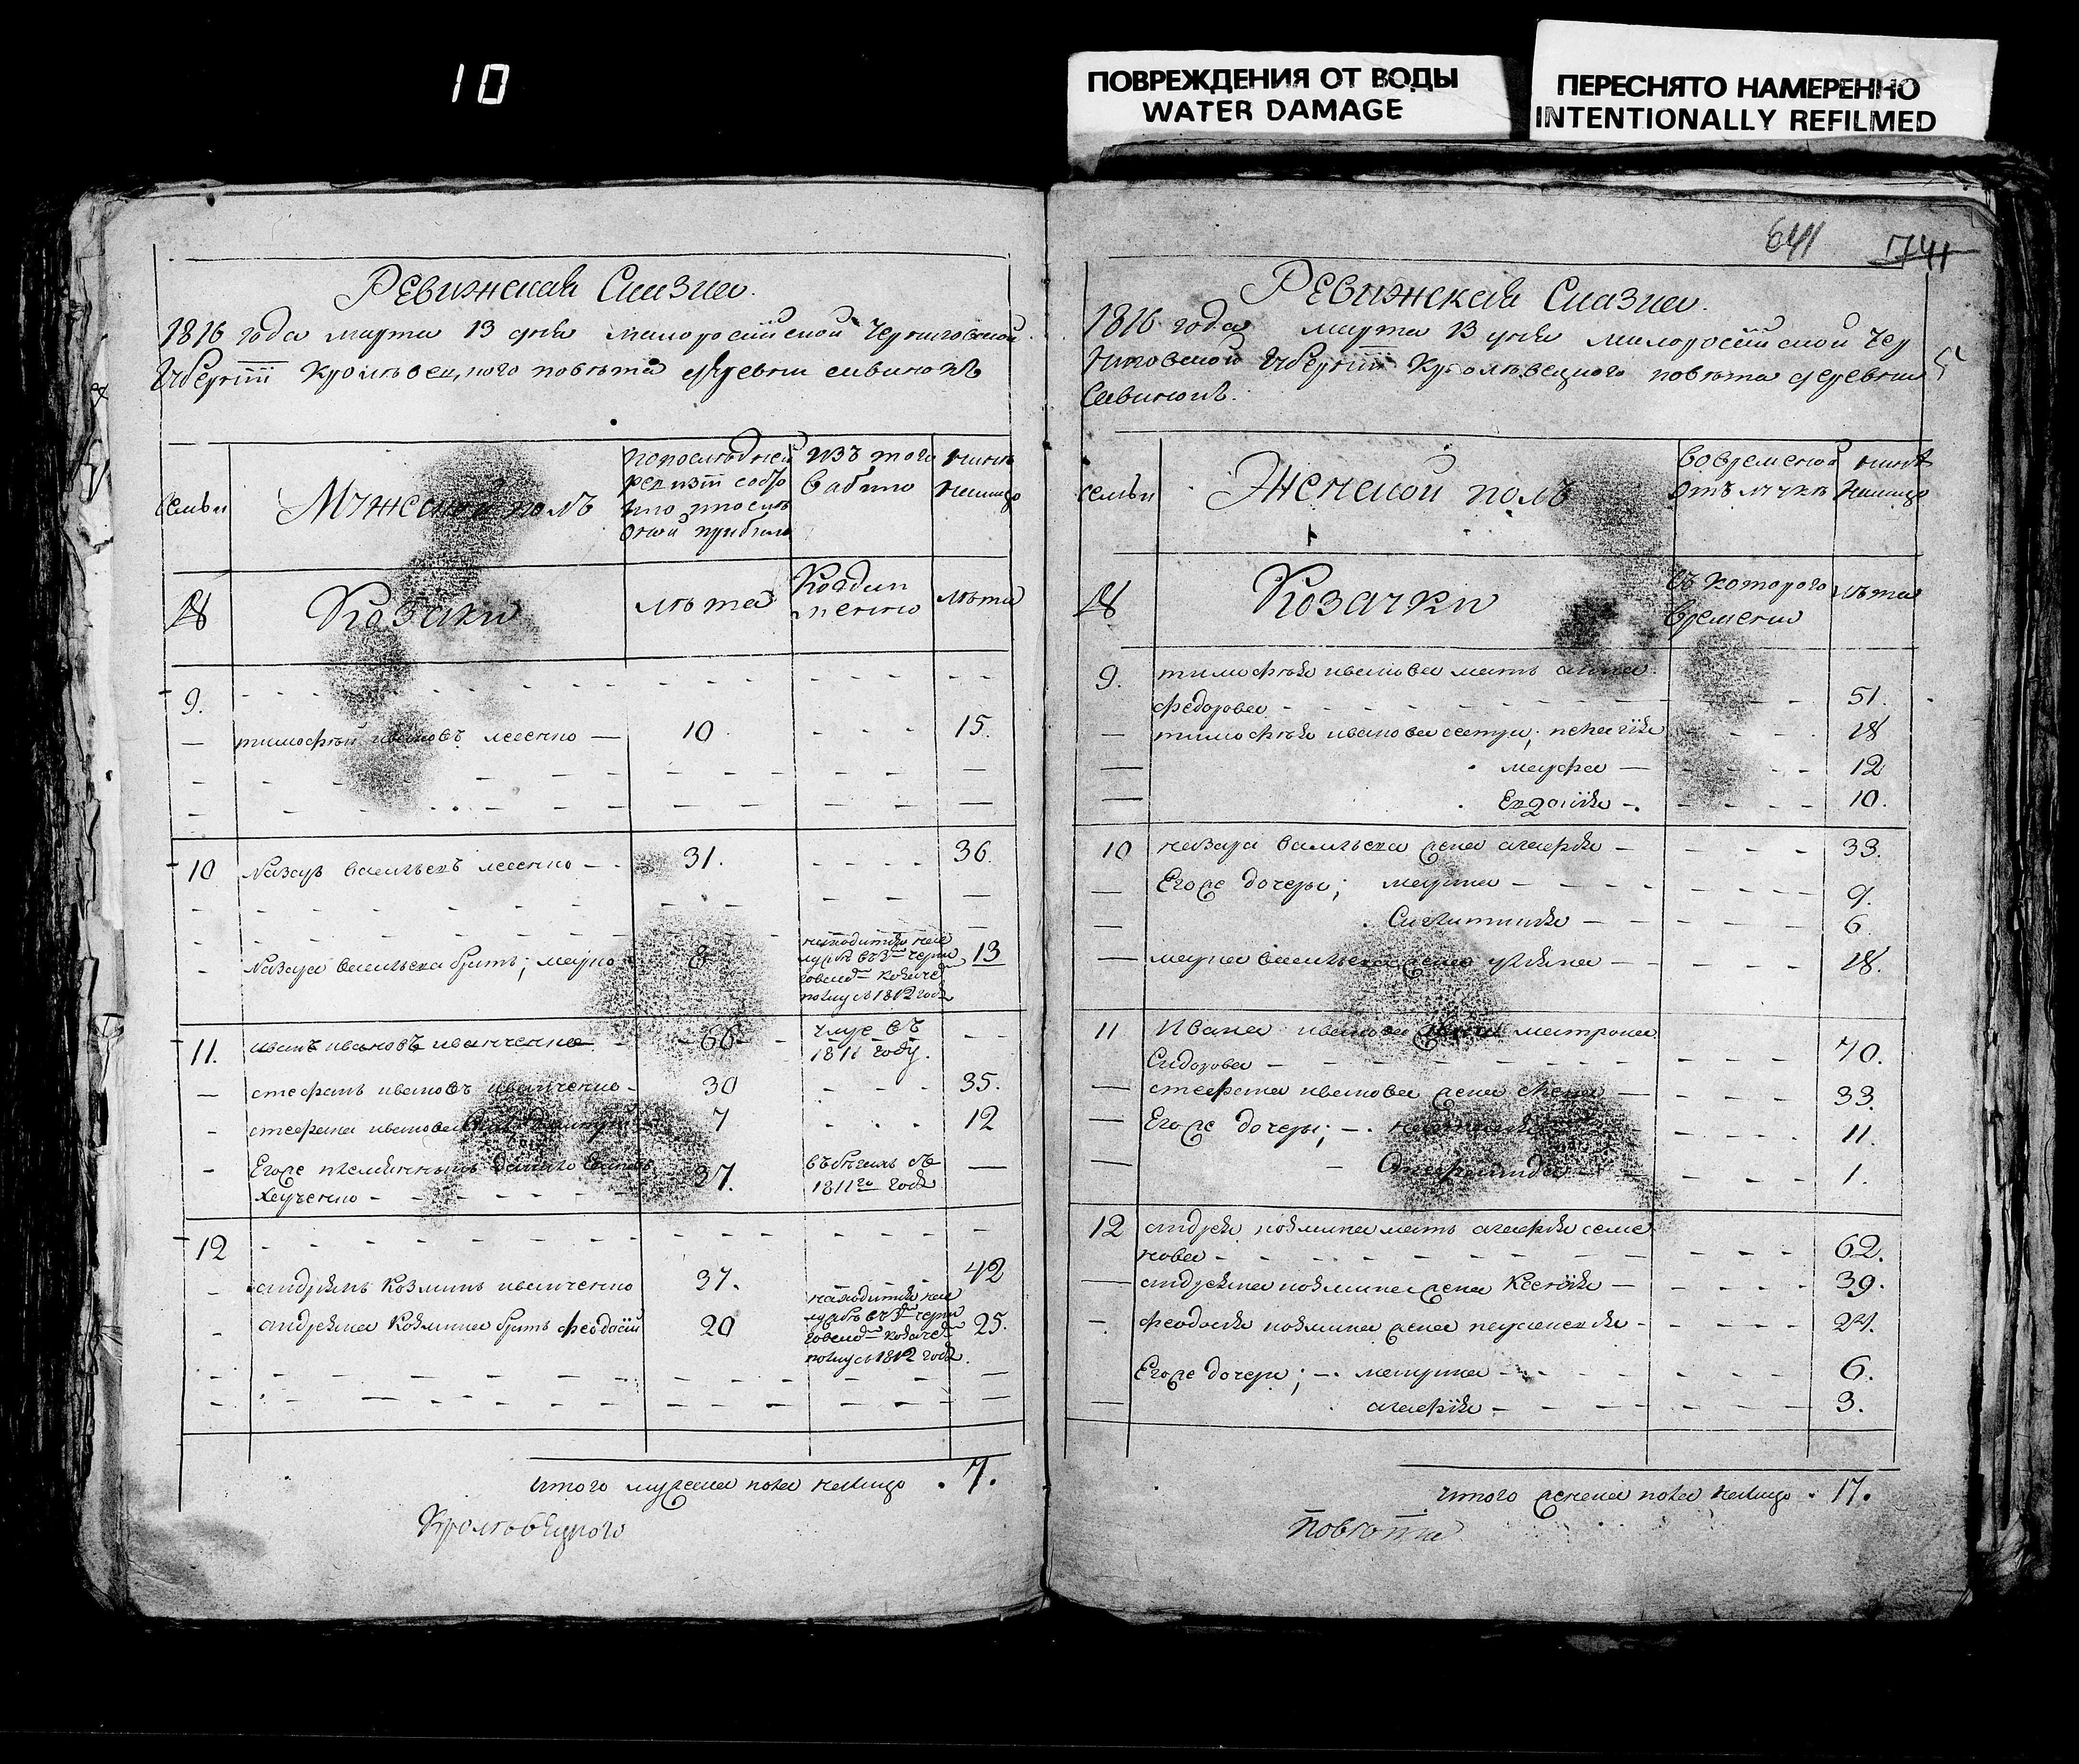 10
ПОВРЕЖДЕНИЯ ОТ ВОДЫ
WATER DAMAGE
ПЕРЕСНЯТО НАМЕРЕННО
INTENTIONALLY REFILMED
Ревижская Сказка.
1816 года марта 13 дня малоросiйской Черниговской
Губернiи Кролѣвецкого повѣта деревни савинокъ
семьи
Мужеской полъ
попоследней
ревизiи состо
яло и после
оной прибыло
изъ того
выбыло
нинѣ
налицо
Козаки
лѣта
Когдаи
менно
лѣта
9.
тимофѣй ивановъ лсенко — 10 15.
10 Назаръ васильевъ лсенко 31. 36.
Назара васильева братъ; марко 8 находится на
службѣ въ 3м черни
говском козаче
полку съ 1812 года
13
11. иванъ ивановъ иванченко 66 умре въ
1811 году.
стефанъ ивановъ иванченко 30 35.
стефана иванова 7 12
Егоже племянникъ данило
37. въ бегахъ съ
1811го года
12
андреянъ Козминъ иванченко 37. 42
андреяна Козмина братъ феодосiй 20 находится на
службѣ въ 3м черни
говском козаче
полку съ 1812 года.
25.
итого мужеска пола налицо . 7.
Кролѣвецкого
641 1741
Ревижская Сказка.
1816 года марта 13 дня малоросiйской Чер
ниговской Губернiи Кролѣвецкого повѣта деревни
Савинокъ.
семьи
Женской полъ
вовременой
отлучкѣ
нинѣ
налицо
Козачки
съ которого
времени
лѣта
9. тимофѣя иванова мать анна
федорова 51.
тимофѣя иванова сестри; пелагiя 18
марфа — 12
Евдокiя — 10.
10 назара васильева жена агафiя — 33.
Егоже дочери; марина — 9.
Синклитикiя 6.
марка васильева жена улiяна — 18.
11 Ивана иванова жена матрона
Сидорова — 70.
стефана иванова жена елена 33.
Егоже дочери; — 11.
1.
12 андрея козмина мать агафiя семе
нова 62.
андреяна козмина жена Ксенiя — 39.
феодосiя козмина жена параскевiя 24.
Егоже дочери; — марина 6.
агафiя — 3.
итого женска пола налицо . 17.
Повѣта